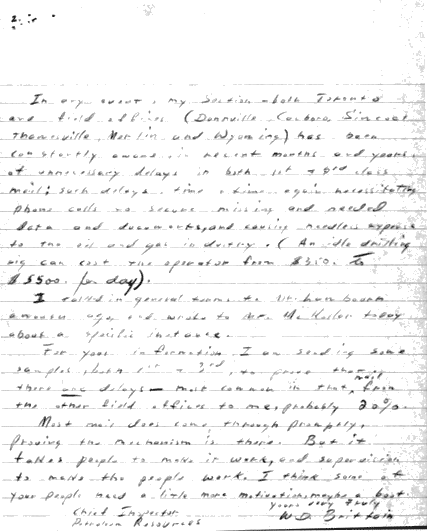 2.
In any event, my Section - both Toronto
and field offices (Dunnville Simcoe
Thamesville, Merlin and Wyoming) has been
constantly aware, in recent months and years
of unnecessary delays in both 1st + 3rd class
mail; such delays, time + time again necessitating
phone calls to secure missing and needed
data and documents, and causing needless expense
to the oil and gas industry. (An idle drilling
rig can cost the operator from $350. to
$5500. per day).
I talked in general terms to Mr.
a month ago, and wrote to Mr. McKellar today
about a specific instance.
For your information, I am sending some
samples, both 1st + 3rd, to prove that
there are delays — most common in that, mail from
the other field offices to me, probably 20%.
Most mail does come through promptly,
proving the mechanism is there. But it
takes people to make it work, and supervision
to make the people work. I think some of
your people need a little more motivation, maybe a boot.
yours very truly
Chief Inspector W D Brittain
Petroleum Resources